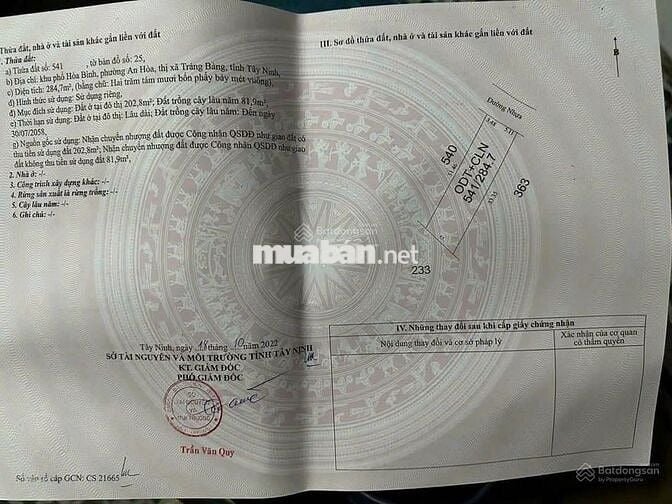 Thửa đất, nhà ở và tài sản khác gắn liền với đất
1. Thửa đất:
a) Thửa đất số: 541 , tờ bản đồ số: 25,
b) Địa chỉ: khu phố Hòa Bình, phường An Hòa, thị xã Trảng Bàng, tỉnh Tây Ninh,
c) Diện tích: 284,7m², (bằng chữ: Hai trăm tám mươi bốn phẩy bảy mét vuông),
d) Hình thức sử dụng: Sử dụng riêng,
đ) Mục đích sử dụng: Đất ở tại đô thị 202,8m²; Đất trồng cây lâu năm 81,9m²,
e) Thời hạn sử dụng: Đất ở tại đô thị: Lâu dài; Đất trồng cây lâu năm: Đến ngày
30/07/2058,
g) Nguồn gốc sử dụng: Nhận chuyển nhượng đất được Công nhận QSDĐ như giao đất có
thu tiền sử dụng đất 202,8m²; Nhận chuyển nhượng đất được Công nhận QSDĐ như giao
đất không thu tiền sử dụng đất 81,9m².
2. Nhà ở: -/-
3. Công trình xây dựng khác: -/-
4. Rừng sản xuất là rừng trồng: -/-
5. Cây lâu năm: -/-
6. Ghi chú: -/-
Tây Ninh, ngày 18 tháng 10 năm 2022
SỞ TÀI NGUYÊN VÀ MÔI TRƯỜNG TỈNH TÂY NINH
KT. GIÁM ĐỐC
PHÓ GIÁM ĐỐC
Trần Văn Quy
Số vào sổ cấp GCN: CS 21665
III. Sơ đồ thửa đất, nhà ở và tài sản khác gắn liền với đất
B
Đường Nhựa
3.48 5.11
540
ODT+CLN
541/284.7
363
233
IV. Những thay đổi sau khi cấp giấy chứng nhận
Nội dung thay đổi và cơ sở pháp lý
Xác nhận của cơ quan
có thẩm quyền
Batdongsan
muaban.net
Batdongsan
by PropertyGuru